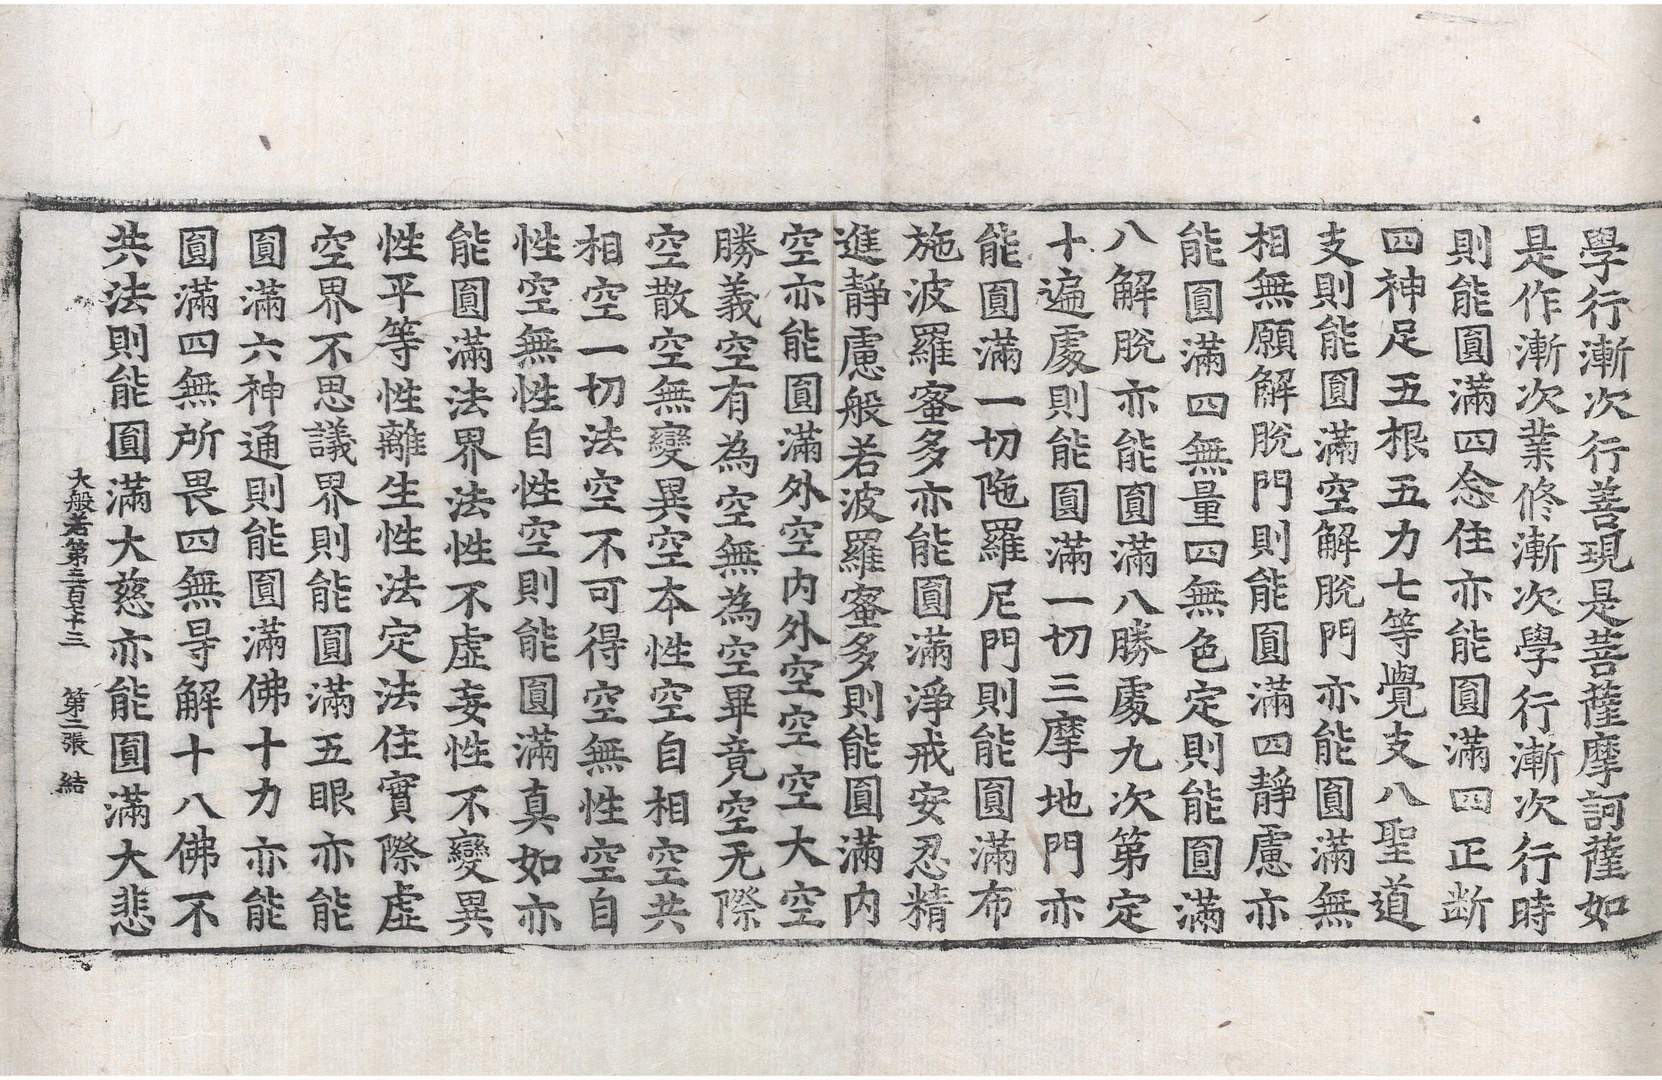 學行漸次行善現是菩薩摩訶薩如
是作漸次業修漸次學行漸次行時
則能圓滿四念住亦能圓滿四正断
四神足五根五力七等覺支八聖道
支則能圓滿空解脫門亦能圓滿無
相無願解脫門則能圓滿四靜慮亦
能圓滿四無量四無色定則能圓滿
八解脫亦能圓滿八勝處九次第定
十遍處則能圓滿一切三摩地門亦
能圓滿一切陁羅尼門則能圓滿布
施波羅蜜多亦能圓滿淨戒安忍精
進靜慮般若波羅蜜多則能圓滿內
空亦能圓滿外空內外空空空大空
勝義空有為空無為空畢竟空无際
空散空無變異空本性空自相空共
相空一切法空不可得空無性空自
性空無性自性空則能圓滿真如亦
能圓滿法界法性不虛妄性不變異
性平等性離生性法定法住實際虛
空界不思議界則能圓滿五眼亦能
圓滿六神通則能圓滿佛十力亦能
圓滿四無所畏四無㝵解十八佛不
共法則能圓滿大慈亦能圓滿大悲
大般若第三百七十三 第二張 結